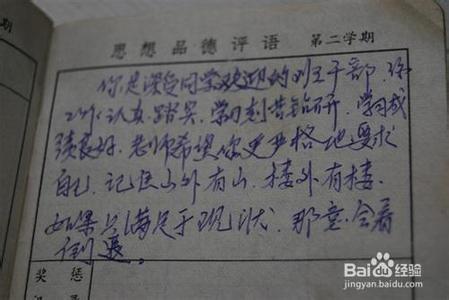 思想品德评语 第二学期
你是深受同学欢迎的 干部,你
工作认真踏实,学习刻苦钻研,学习成
绩良好,老师希望你更严格地要求
自己,记住山外有山,楼外有楼,
如果只满足于现状,那意 会着
倒退。
奖惩
Baidu 经验
jingyan.baidu.com